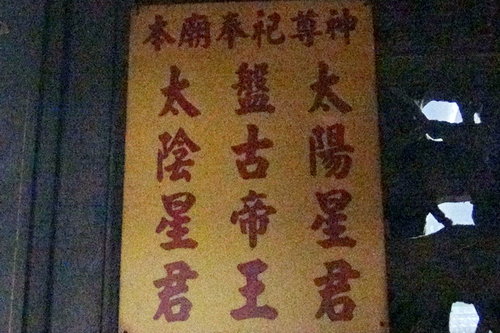 本廟奉祀尊神
太陽星君
盤古帝王
太陰星君